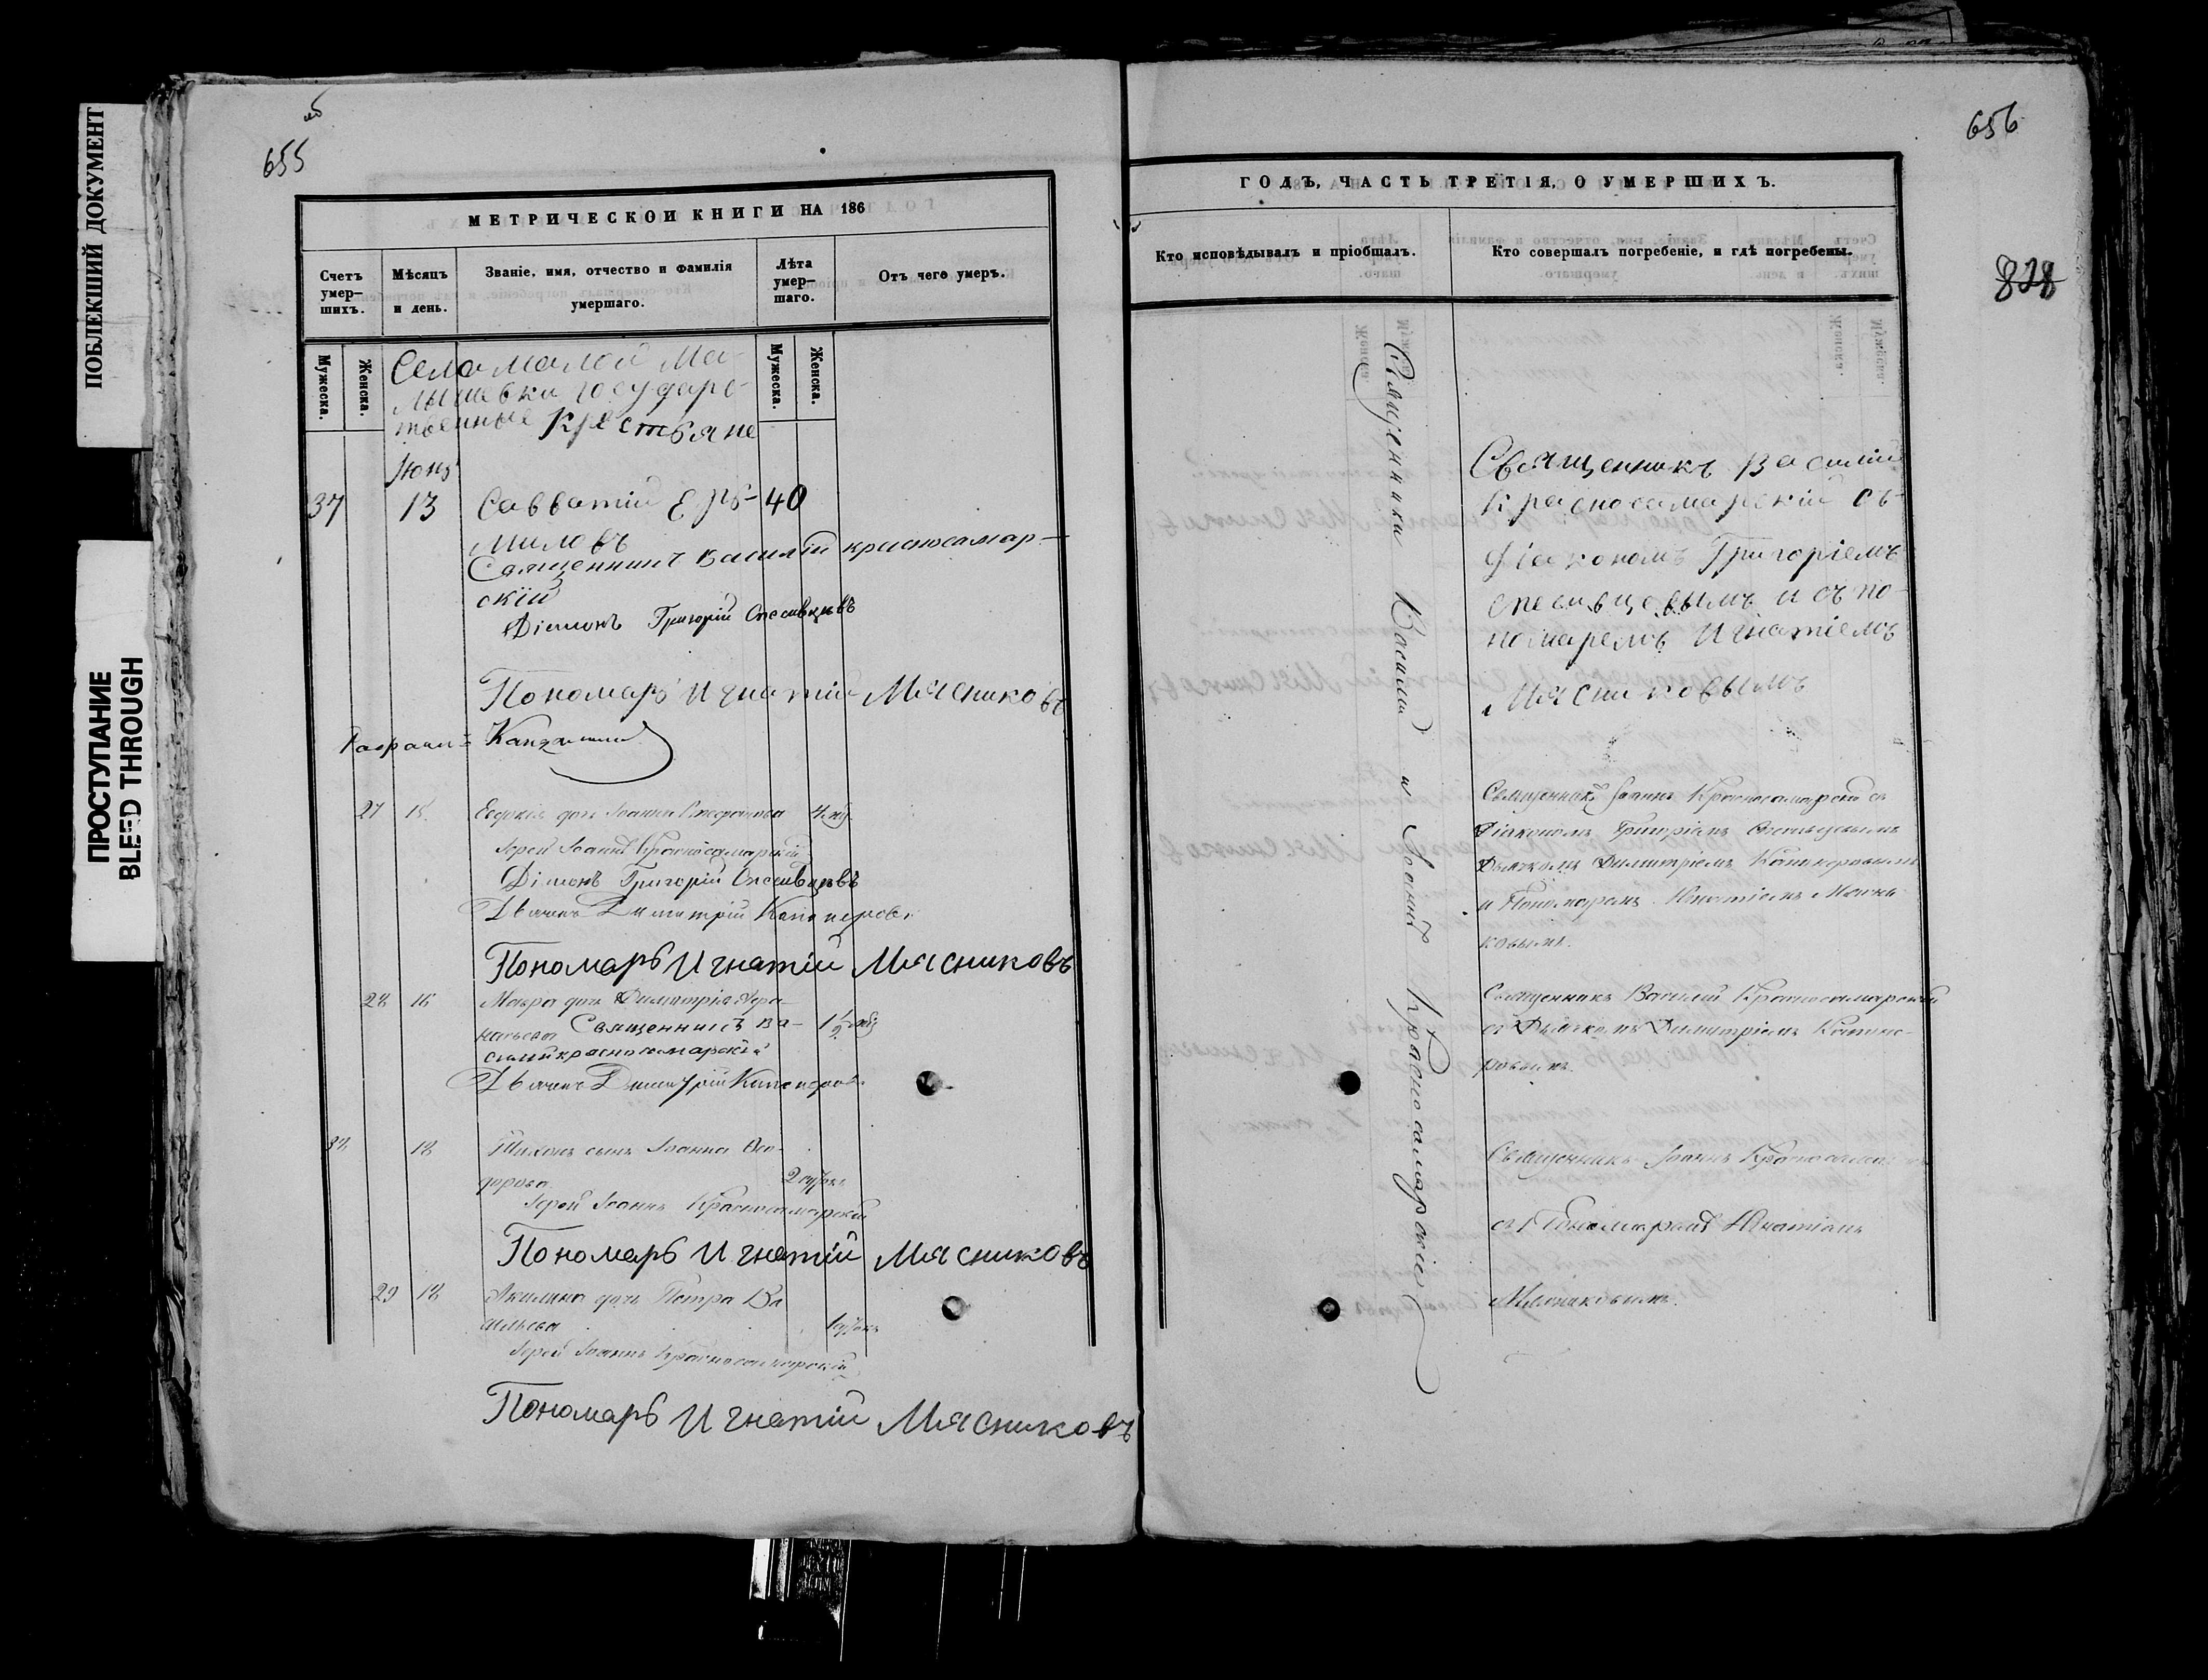 ПОБЛЕКШИЙ ДОКУМЕНТ
ПРОСТУПАНИЕ
BLEED THROUGH
655
МЕТРИЧЕСКОЙ КНИГИ НА 186
Счетъ умер-шихъ.
Мѣсяцъ и день.
Званіе, имя, отчество и фамилія умершаго.
Лѣта умер-шаго.
Отъ чего умеръ.
Мужеска.
Женска.
Мужеска.
Женска.
Села малой Ма-
лышевки государс-
твенные крестьяне
Іюнь
37 13 Савватій Ер- 40
миловъ
Священникъ Василій красносамар-
скій
Діаконъ Григорій Спесивцевъ
Пономарь Игнатій Мясниковъ
27 15 Евдокія дочь Іоанна
Іерей Іоаннъ Красносамарскій
Діаконъ Григорій Спесивцевъ
Дьячекъ Димитрій
Пономарь Игнатій Мясниковъ
28 16 Мавра дочь Димитрія Афа-
насьева Священникъ Ва- 1½
силій красносамарскій
Дьячекъ Димитрій
38 18 Тихонъ сынъ Іоанна Ѳео-
дорова
Іерей Іоаннъ Красносамарскій
Пономарь Игнатій Мясниковъ
29 18 Акилина дочь Петра Ва
сильева
Іерей Іоаннъ Красносамарскій
Пономарь Игнатій Мясниковъ
656
828
ГОДЪ, ЧАСТЬ ТРЕТІЯ, О УМЕРШИХЪ.
Кто исповѣдывалъ и пріобщалъ.
Кто совершалъ погребеніе, и гдѣ погребены.
Священники Василій и Іоаннъ Красносамарскіе
Священникъ Василій
Красносамарскій съ
Діакономъ Григоріемъ
Спесивцевымъ и съ по-
номаремъ Игнатіемъ
Мясниковымъ
Священникъ Іоаннъ Красносамарскій съ
Діакономъ Григоріемъ Спесивцевымъ
Дьячкомъ Димитріемъ
и Пономаремъ Игнатіемъ Мясни
ковымъ.
Священникъ Василій Красносамарскій
съ Дьячкомъ Димитріемъ
Священникъ Іоаннъ
съ Пономаремъ Игнатіемъ
Мясниковымъ.